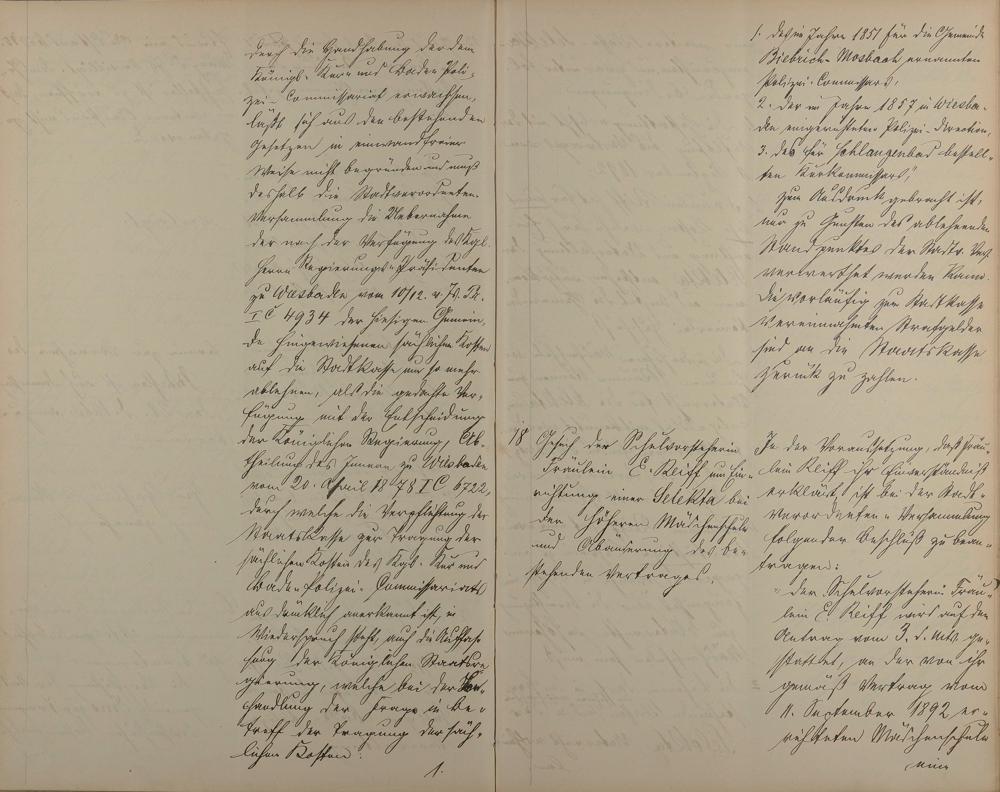 durch die Handhabung der dem
Königl. Kur- und Bade-Poli-
zei-Commissariat erwachsen,
läßt sich aus den bestehenden
Gesetzen in einwandfreier
Weise nicht begründen und muß
deshalb die Stadtverordneten-
Versammlung die Uebernahme
der nach der Verfügung des Kgl.
Herrn Regierungs-Präsidenten
zu Wiesbaden vom 10/12. v. Js. Pr.
I C 4934 der hiesigen Gemein-
de hingewiesenen sächlichen Kosten
auf die Stadtkasse um so mehr
ablehnen, als die gedachte Ver-
fügung mit der Entscheidung
der Königlichen Regierung, Ab-
theilung des Innern zu Wiesbaden
vom 20. April 1878 I C. 6722,
durch welche die Verpflichtung der
Staatskasse zur Tragung der
sächlichen Kosten des Kgl. Kur und
Bade-Polizei-Commissariats
ausdrücklich anerkannt ist, in
Wiederspruch steht, auch die Auffas-
sung der Königlichen Staatsre-
gierung, welche bei der Ver-
handlung der Frage in be-
treff der Tragung der säch-
lichen Kosten:
1.
1. des im Jahre 1851 für die Gemeinde
Biebrich-Mosbach ernannten
Polizei-Commissars,
2. der im Jahre 1857 in Wiesba-
den eingerichteten Polizei-Direction,
3. des für Schlangenbad bestell-
ten Kurkommissars"
zum Ausdruck gebracht ist,
nur zu Gunsten des ablehnenden
Standpunktes der Stadtv. Vers.
verwerthet werden kann.
Die vorläufig zur Stadtkasse
vereinnahmten Strafgelder
sind an die Staatskasse
zurück zu zahlen.
18 Gesuch der Schulvorsteherin
Fräulein E. Reiff um Ein-
richtung einer Selekta bei
der höheren Mädchenschule
und Abänderung des be-
stehenden Vertrages.
In der Voraussetzung, daß Fräu-
lein Reiff ihr Einverständniß
erklärt, ist bei der Stadt-
verordneten-Versammlung
folgender Beschluß zu bean-
tragen:
"Der Schulvorsteherin Fräu-
lein E. Reiff wird auf den
Antrag vom 3. d. Mts. ge-
stattet, an der von ihr
gemäß Vertrag vom
11. September 1892 er-
richteten Mädchenschule
eine